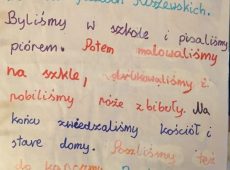 Byliśmy w szkole i pisaliśmy
piórem. Potem malowaliśmy
na szkle, i
robiliśmy róże z bibuły. Na
końcu zwiedzaliśmy kościół i
stare domy. Poszliśmy też
do